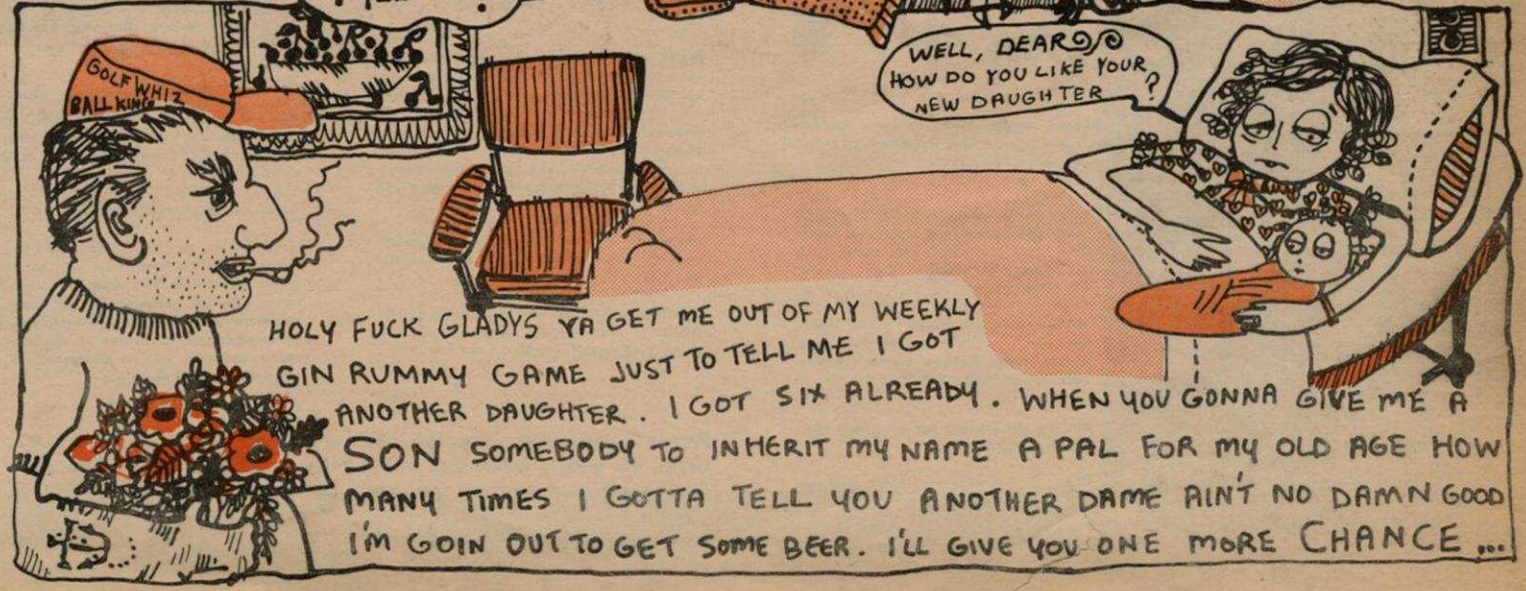 GOLF WHIZ
BALL KING
WELL, DEAR
HOW DO YOU LIKE YOUR
NEW DAUGHTER ?
HOLY FUCK GLADYS YA GET ME OUT OF MY WEEKLY
GIN RUMMY GAME JUST TO TELL ME I GOT
ANOTHER DAUGHTER. I GOT SIX ALREADY. WHEN YOU GONNA GIVE ME A
SON SOMEBODY TO INHERIT MY NAME A PAL FOR MY OLD AGE HOW
MANY TIMES I GOTTA TELL YOU ANOTHER DAME AIN'T NO DAMN GOOD
I'M GOIN OUT TO GET SOME BEER. I'LL GIVE YOU ONE MORE CHANCE...